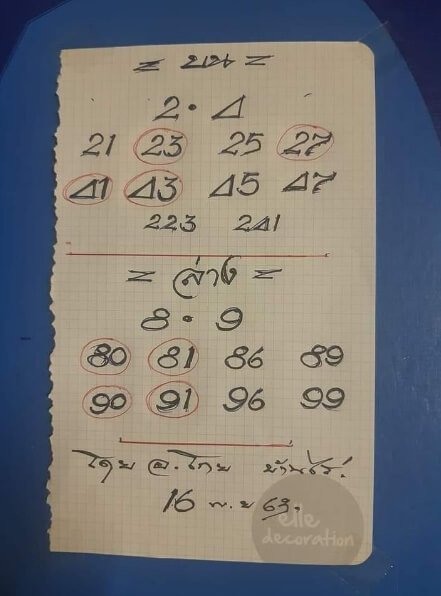 = บน =
2 • 4
21 23 25 27
41 43 45 47
223 241
= ล่าง =
8 • 9
80 81 86 89
90 91 96 99
โดย อ.ไกย บ้านไร่.
16 พ.ย 63.
elle
decoration